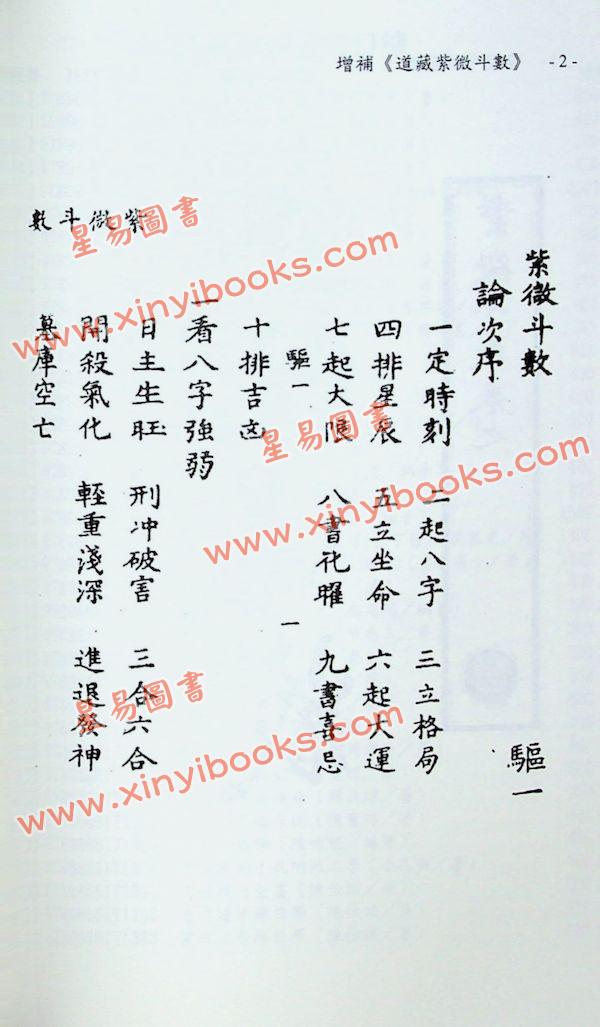 增補《道藏紫微斗數》 -2-
紫微斗數 驅一
論次序
一定時刻 二起八字 三立格局
四排星辰 五立坐命 六起大運
七起大限 八書化曜 九書喜忌
驅一 一
十排吉凶
一看八字強弱
日主生旺 刑冲破害 三合六合
開殺氣化 輕重淺深 進退發神
墓庫空亡
紫微斗數
星易圖書
www.xinyibooks.com
星易圖書
www.xinyibooks.com
星易圖書
www.xinyibooks.com